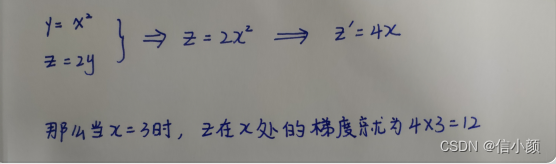 y = x² } ⇒ z = 2x² ⟹ z' = 4x
z = 2y
那么当x=3时，z在x处的梯度就为4×3=12
CSDN @信小颜